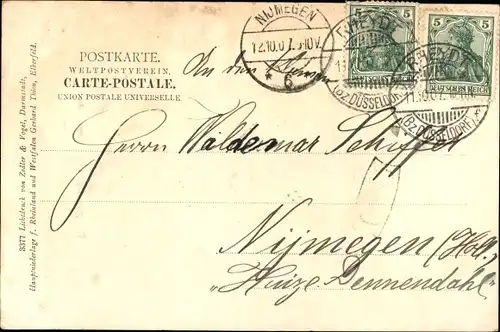 NIJMEGEN
12.10.07.
6
5 5
5 5
DEUTSCHES REICH
RHEYDT
(BZ.DÜSSELDORF)
RHEYDT
11.10.07.
(BZ.DÜSSELDORF)
POSTKARTE.
WELTPOSTVEREIN.
CARTE-POSTALE.
UNION POSTALE UNIVERSELLE.
An den
Herrn Waldemar Schiffer
Nijmegen (Holl.)
„Huize Dennendahl“
3577 Lichtdruck von Zedler & Vogel, Darmstadt.
Hauptniederlage f. Rheinland und Westfalen Gerhard Thien, Elberfeld.